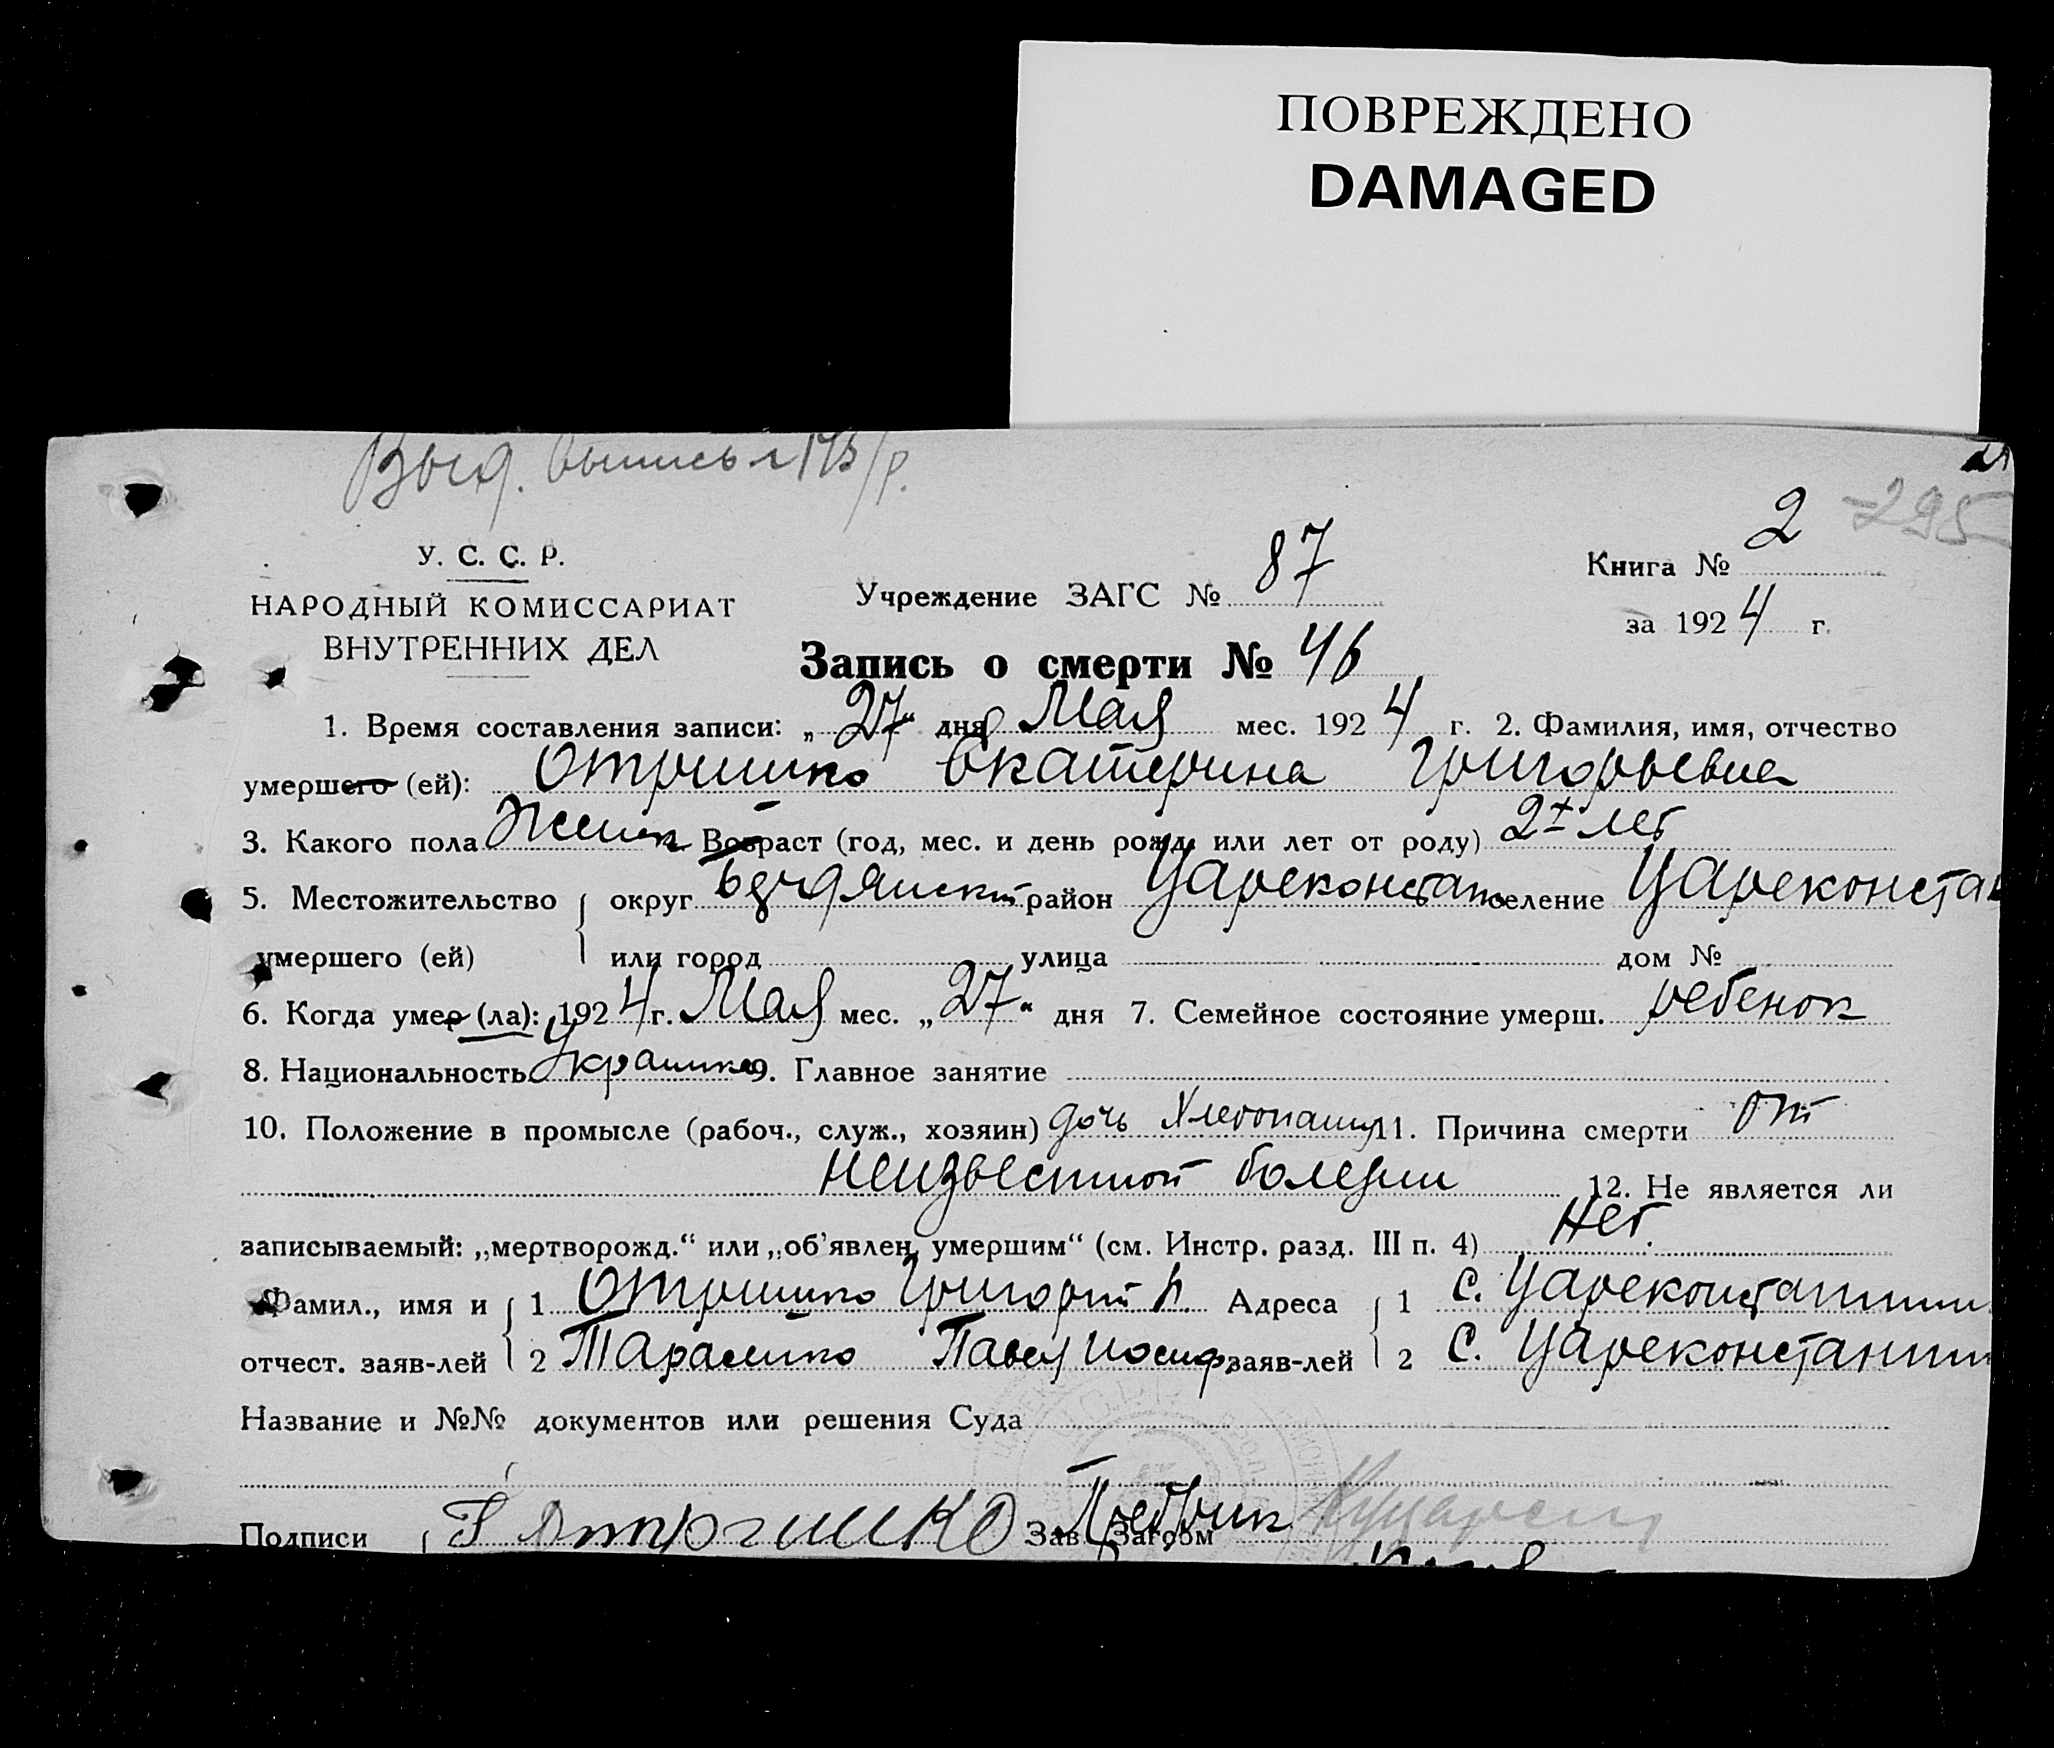 ПОВРЕЖДЕНО
DAMAGED
Выд. выпись
2
295
У. С. С. Р.
НАРОДНЫЙ КОМИССАРИАТ
ВНУТРЕННИХ ДЕЛ
Учреждение ЗАГС № 87
Книга № 2
за 1924 г.
Запись о смерти № 46
1. Время составления записи: „27“ дня Мая мес. 1924 г. 2. Фамилия, имя, отчество
умершего (ей): Отришко Екатерина Григорьевна
3. Какого пола Женск Возраст (год, мес. и день рожд. или лет от роду) 2х лет
5. Местожительство округ Бердянский район Цареконстан селение Цареконстан
умершего (ей) или город улица дом №
6. Когда умер (ла): 1924 г. Мая мес. „27“ дня 7. Семейное состояние умерш. ребенок
8. Национальность Украинка 9. Главное занятие
10. Положение в промысле (рабоч., служ., хозяин) дочь Хлебопашц 11. Причина смерти от
неизвестной болезни 12. Не является ли
записываемый: „мертворожд.“ или „об’явлен. умершим“ (см. Инстр. разд. III п. 4) Нет.
Фамил., имя и 1 Отришко Григорий П. Адреса 1 с. Цареконстантин
отчест. заяв-лей 2 Тарасенко Павел Иосиф заяв-лей 2 с. Цареконстантин
Название и №№ документов или решения Суда
Подписи Г Отришко Зав. Загсом